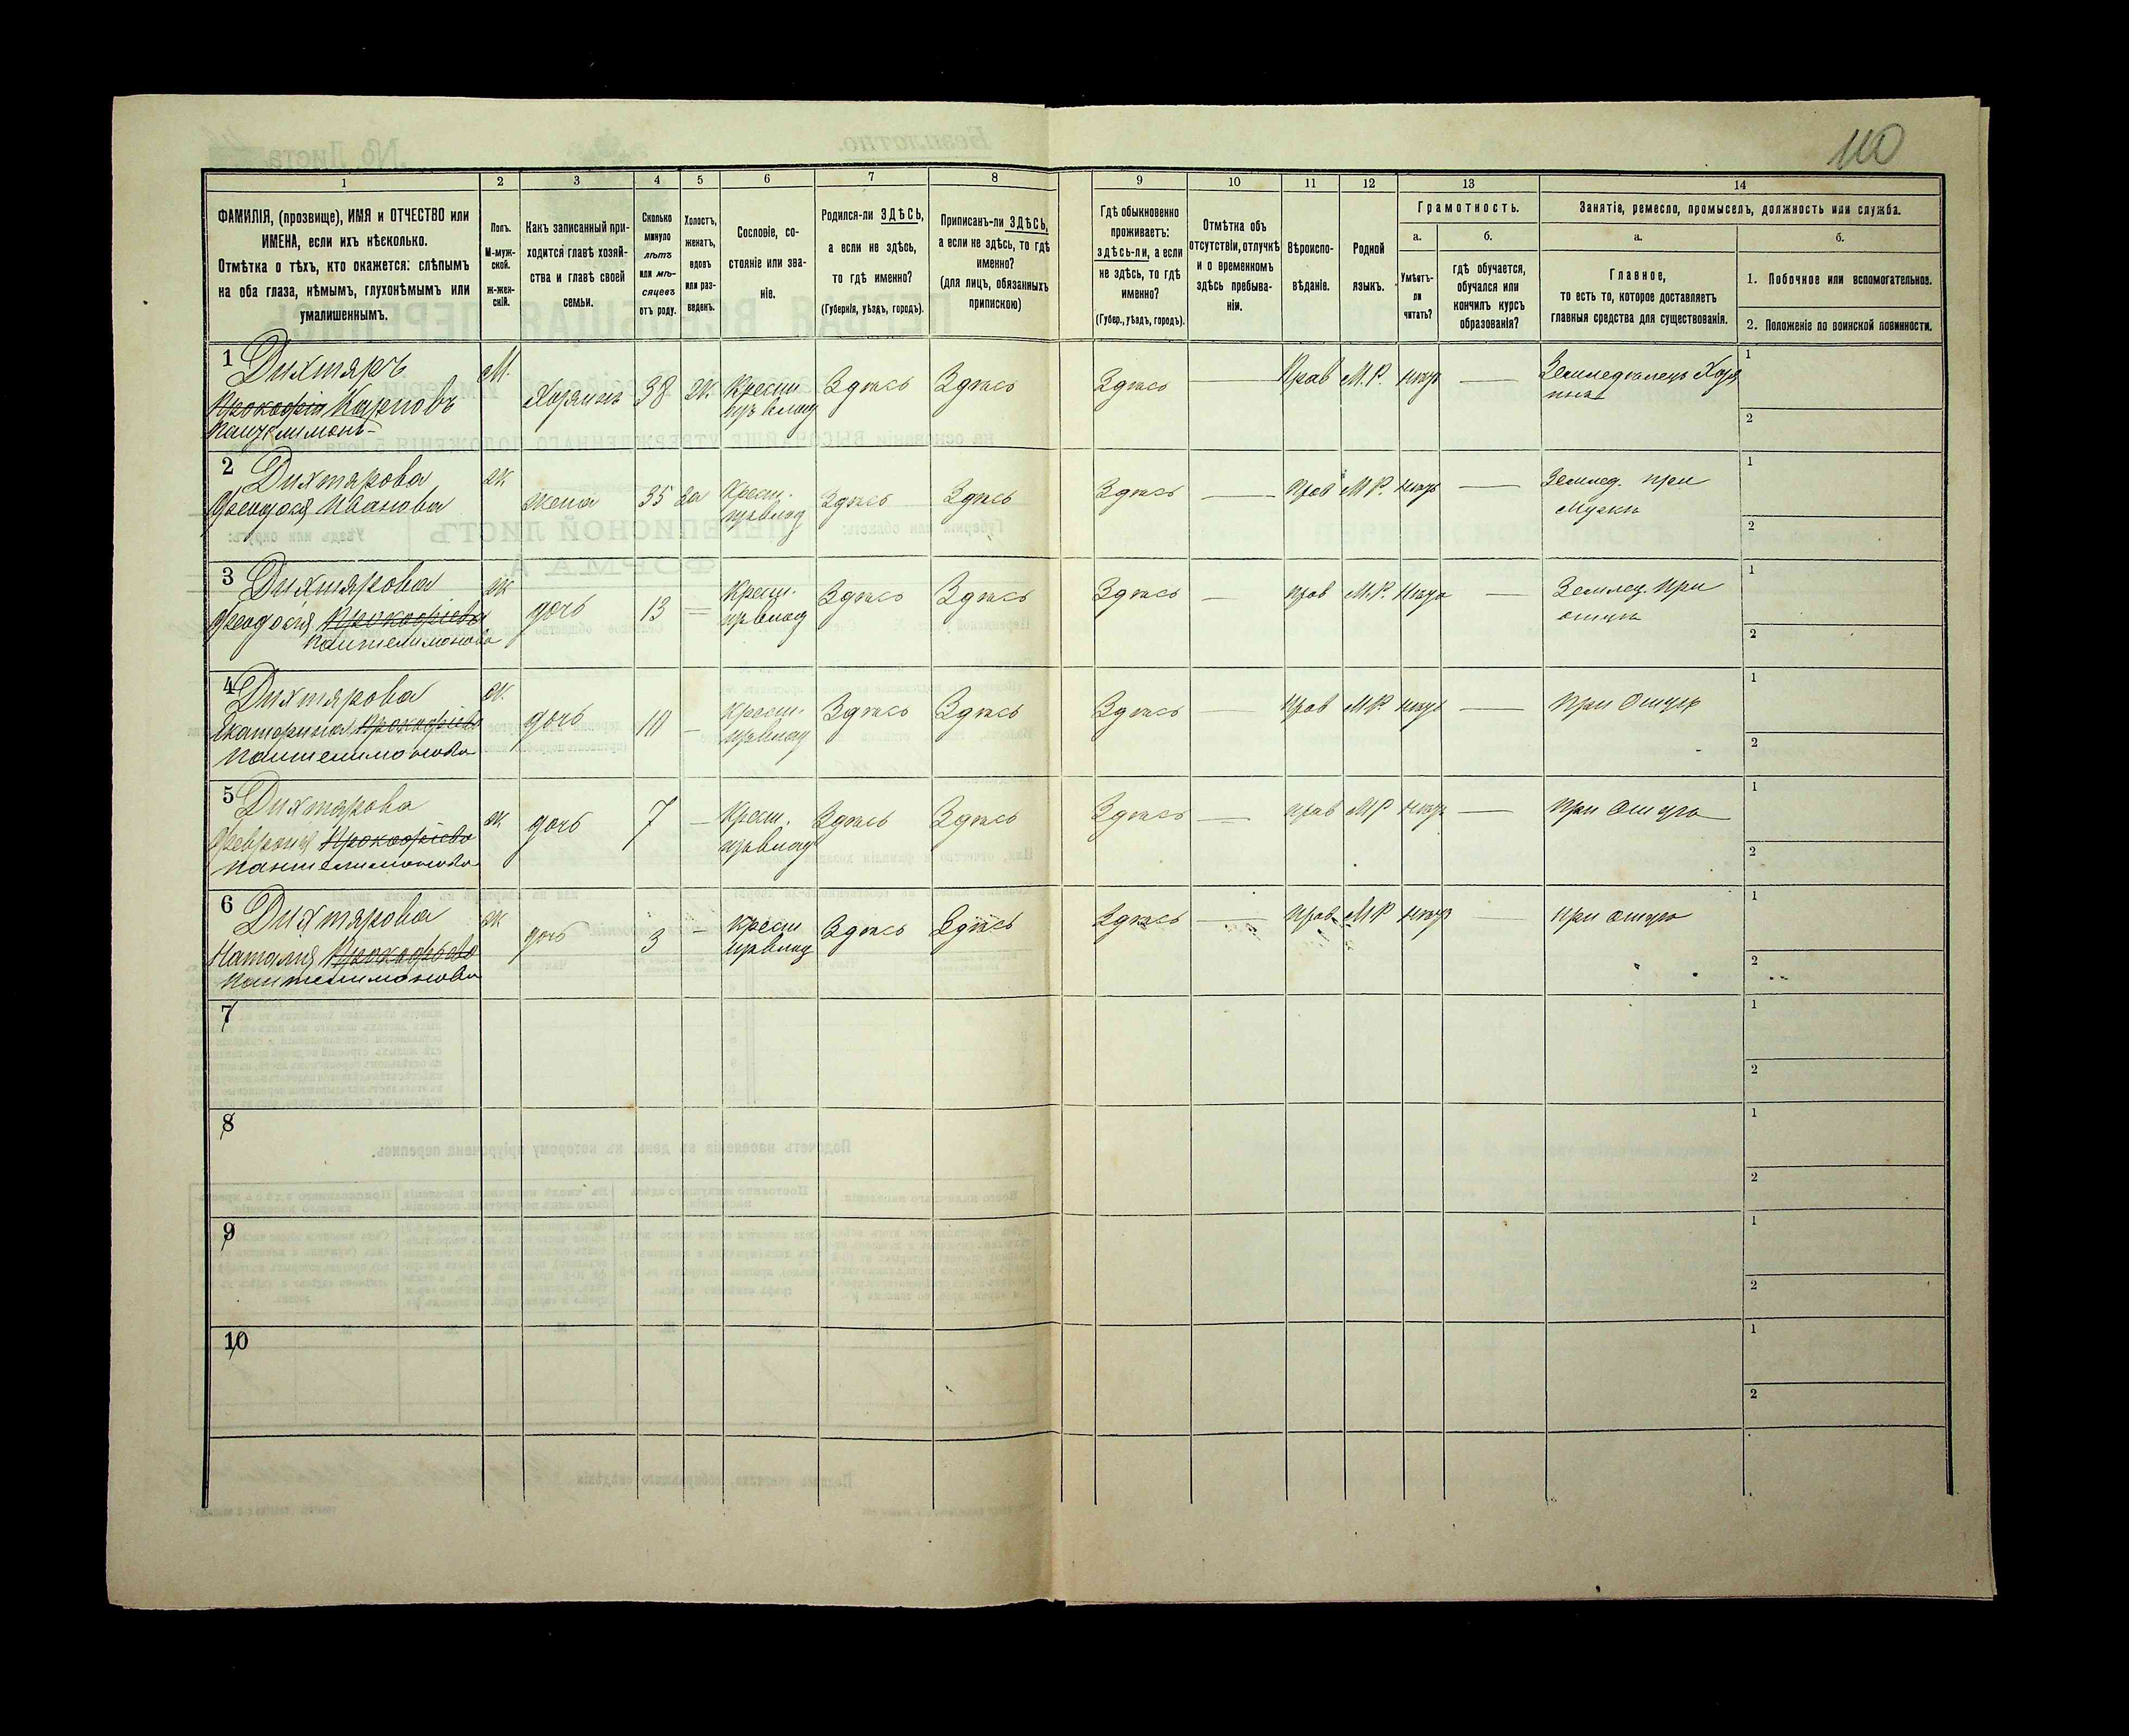 110
1 2 3 4 5 6 7 8 9 10 11 12 13 14
ФАМИЛІЯ, (прозвище), ИМЯ и ОТЧЕСТВО или
ИМЕНА, если ихъ нѣсколько.
Отмѣтка о тѣхъ, кто окажется: слѣпымъ
на оба глаза, нѣмымъ, глухонѣмымъ или
умалишеннымъ.
Полъ.
М-муж-
ской.
Ж-жен-
скій.
Какъ записанный при-
ходится главѣ хозяй-
ства и главѣ своей
семьи.
Сколько
минуло
лѣтъ
или мѣ-
сяцевъ
отъ роду.
Холостъ,
женатъ,
вдовъ
или раз-
веденъ.
Сословіе, со-
стояніе или зва-
ніе.
Родился-ли ЗДѢСЬ,
а если не здѣсь,
то гдѣ именно?
(Губернія, уѣздъ, городъ).
Приписанъ-ли ЗДѢСЬ,
а если не здѣсь, то гдѣ
именно?
(для лицъ, обязанныхъ
припискою)
Гдѣ обыкновенно
проживаетъ:
здѣсь-ли, а если
не здѣсь, то гдѣ
именно?
(Губер., уѣздъ, городъ).
Отмѣтка объ
отсутствіи, отлучкѣ
и о временномъ
здѣсь пребыва-
ніи.
Вѣроиспо-
вѣданіе.
Родной
языкъ.
Грамотность.
а.
Умѣетъ-
ли
читать?
б.
гдѣ обучается,
обучался или
кончилъ курсъ
образованія?
Занятіе, ремесло, промыселъ, должность или служба.
а.
Главное,
то есть то, которое доставляетъ
главныя средства для существованія.
б.
1. Побочное или вспомогательное.
2. Положеніе по воинской повинности.
1 Дихтяръ М. Хозяинъ 38 Ж. Крест. Здѣсь Здѣсь Здѣсь — Прав М.Р. — 1
Прокофій Карповъ 2
2 Дихтярова Ж жена 35 За Крест. Здѣсь Здѣсь Здѣсь — Прав М.Р. — Землед. при 1
Феодосія Иванова мужи 2
3 Дихтярова Ж дочь 13 — Крест. Здѣсь Здѣсь Здѣсь — прав М.Р. — Землед. при 1
Феодосія Прокофіева отцѣ 2
Пантелимонова
4 Дихтярова Ж. дочь 10 — Крест. Здѣсь Здѣсь Здѣсь — прав М.Р. — при отцѣ 1
Екатерина Прокофіева 2
Пантелимонова
5 Дихтярова Ж дочь 7 — Крест. Здѣсь Здѣсь Здѣсь — прав М.Р — при отцѣ 1
Феврония Прокофіева 2
Пантелимонова
6 Дихтярова Ж дочь 3 — Крест Здѣсь Здѣсь Здѣсь — прав М.Р — при отцѣ 1
Наталия Прокофьева 2
Пантелимонова
7 1
2
8 1
2
9 1
2
10 1
2